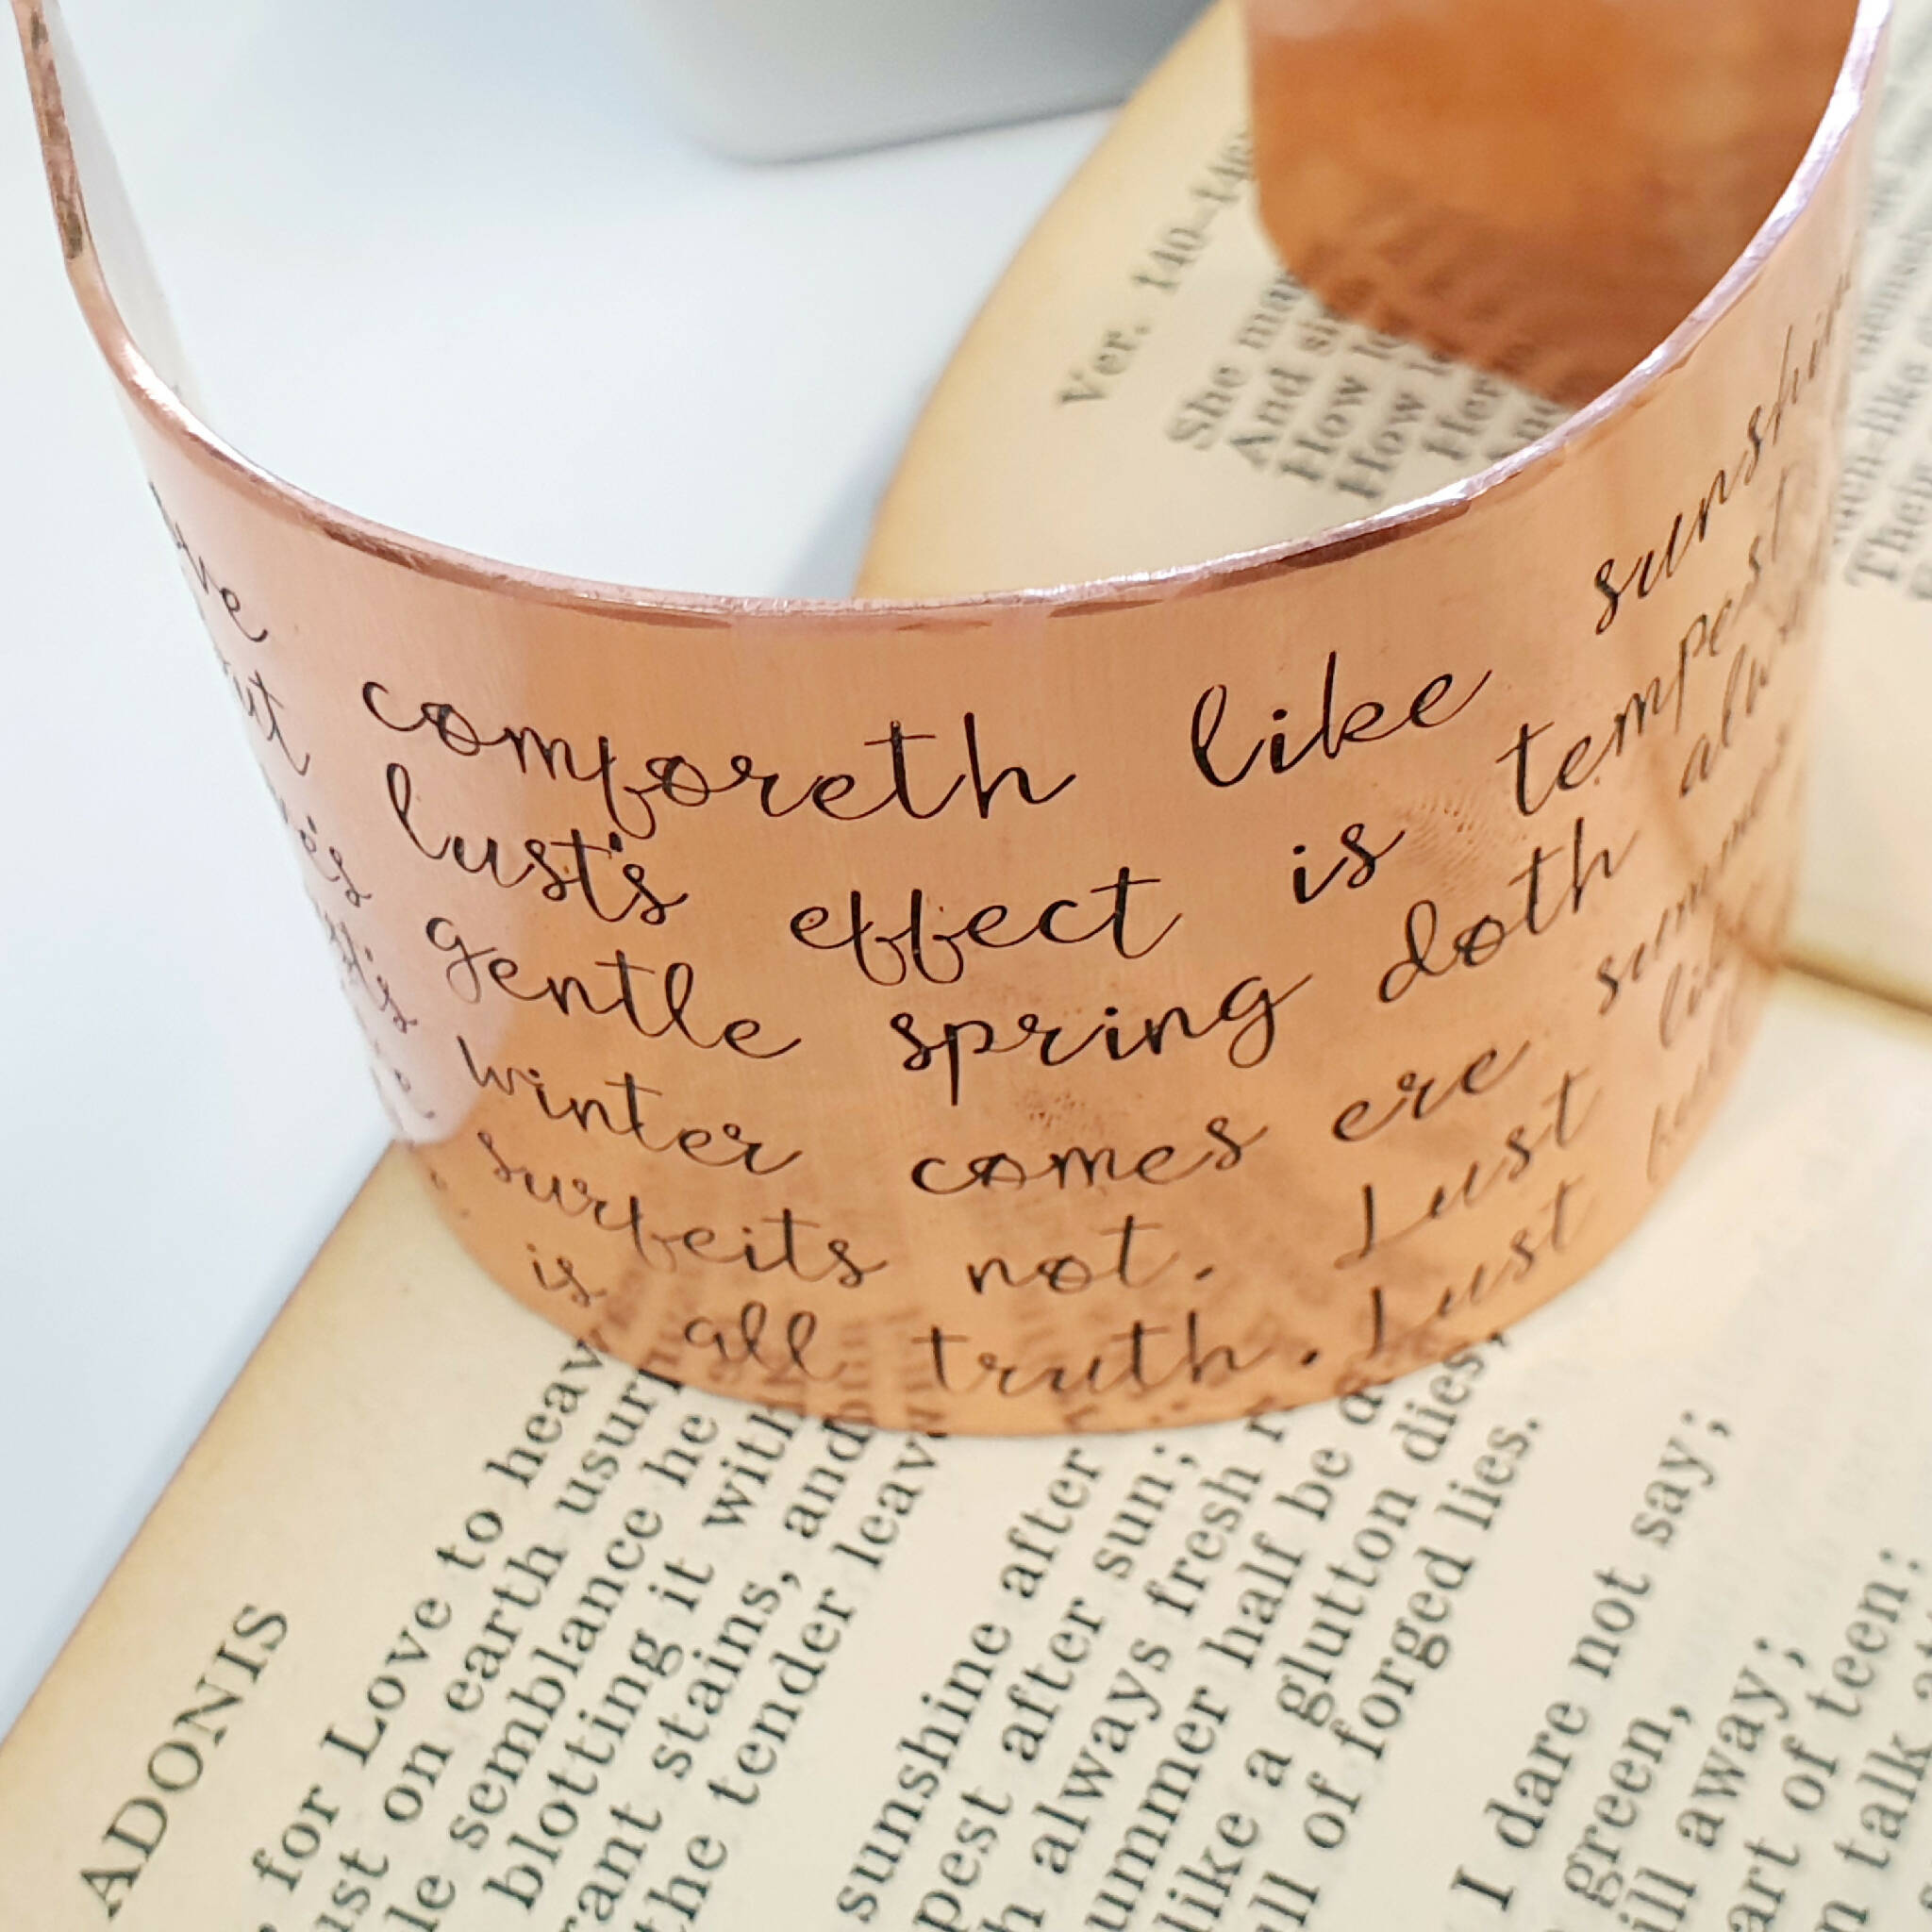 comforeth like sunshin
ut lust's effect is tempest
gentle spring doth alw
winter comes ere summe
surfeits not. Lust lik
is all truth. Lust full
Ver. 140-146
She
And
How
How
Her
ADONIS
for Love to heav
ust on earth usur
le semblance he
blotting it with
rant stains, and
the tender leav
sunshine after
pest after sun;
h always fresh r
ummer half be
like a glutton dies,
ll of forged lies.
I dare not say;
green,
ill away;
art of teen:
n talk